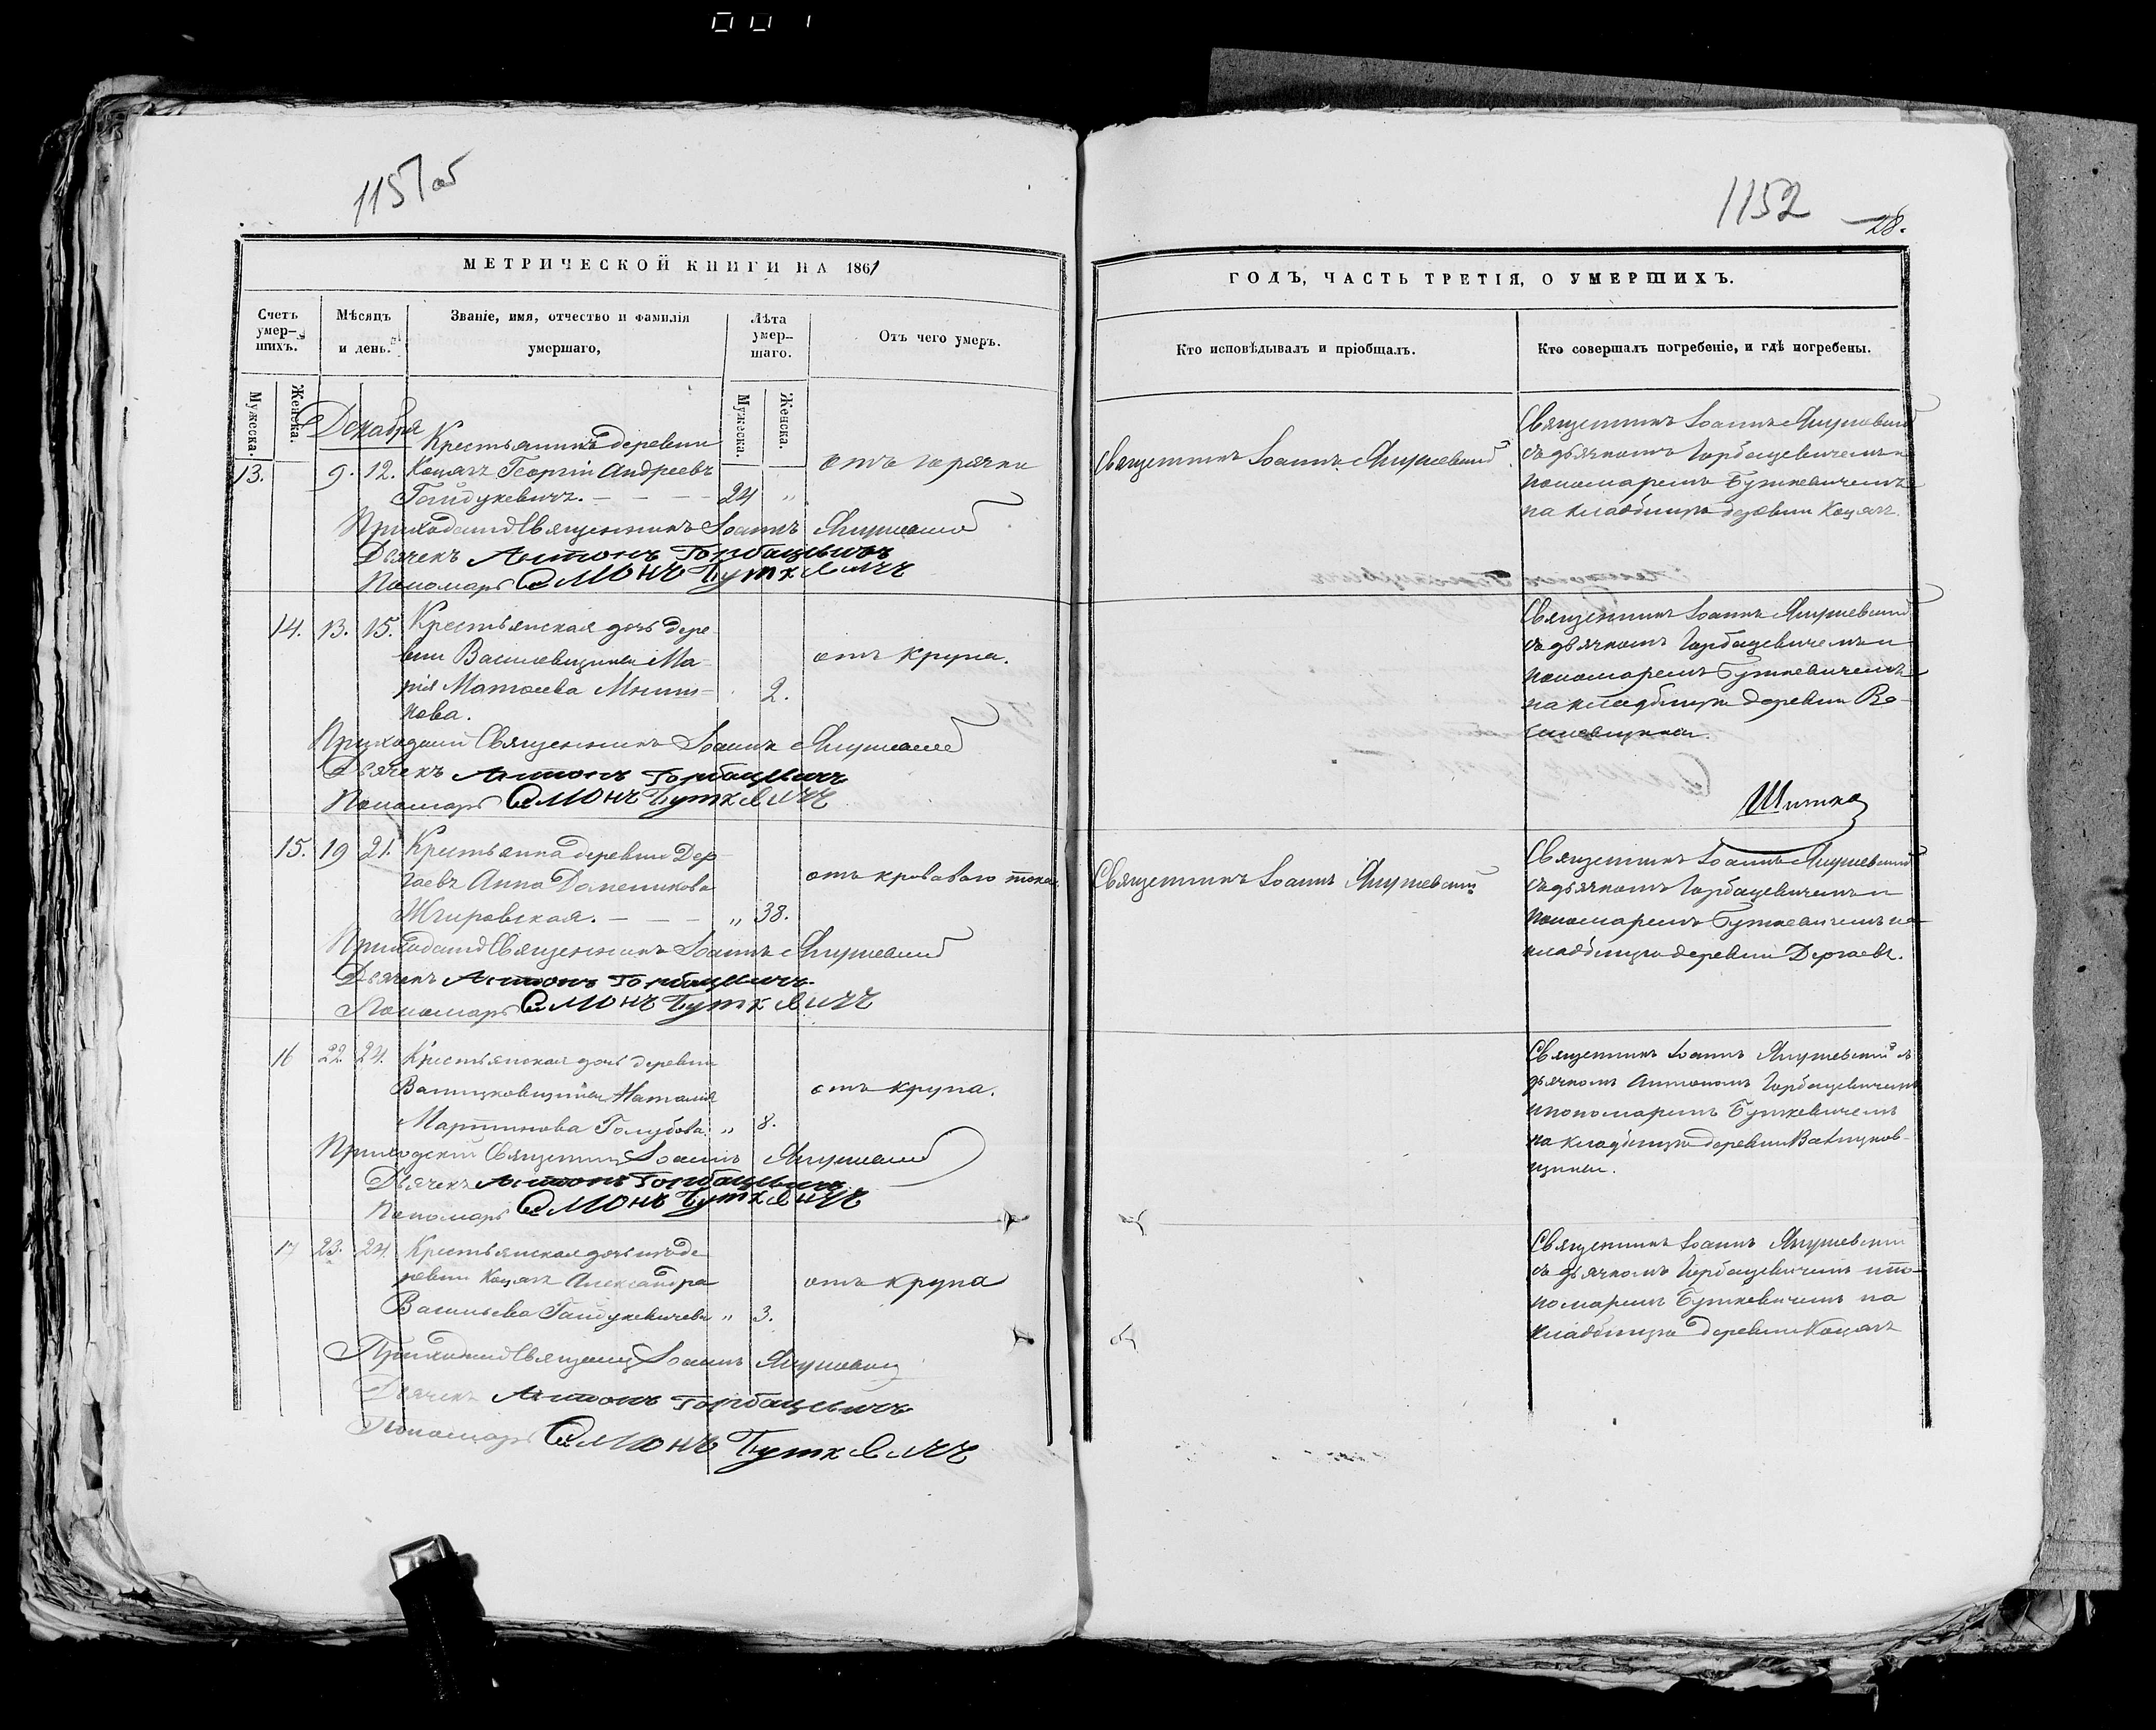 1151 об
МЕТРИЧЕСКОЙ КНИГИ НА 1861
Счетъ умер-шихъ.
Мѣсяцъ и день.
Званіе, имя, отчество и фамилія умершаго,
Лѣта умер-шаго.
Отъ чего умеръ.
Мужеска.
Женска.
Мужеска.
Женска.
Декабря
Крестьянинъ деревни
13. 9. 12. Коцахъ Георгій Андреевъ отъ горячки
Гайдукевичъ. — — — 24 "
Приходскій Священникъ Іоаннъ
Дьячекъ Антонъ Горбацевичъ
Пономарь Симонъ Буткевичъ
14. 13. 15. Крестьянская дочь дере-
вни Ма- отъ крупа.
рія 2.
нова.
Приходскій Священникъ Іоаннъ
Дьячекъ Антонъ Горбацевичъ
Пономарь Симонъ Буткевичъ
15. 19 21. Крестьянка деревни Дер-
гаевъ Анна отъ кроваваго тока
— — — " 38.
Приходскій Священникъ Іоаннъ
Дьячекъ Антонъ Горбацевичъ
Пономарь Симонъ Буткевичъ
16 22. 24. Крестьянская дочь деревни
Наталія отъ крупа.
Мартинова Голубова. " 8.
Приходскій Священникъ Іоаннъ
Дьячекъ Антонъ Горбацевичъ
Пономарь Симонъ Буткевичъ
17 23. 24. Крестьянская дочь изъ де
ревни Коцахъ Александра отъ крупа
Васильева Гайдукевичева " 3.
Приходскій Священникъ Іоаннъ
Дьячекъ Антонъ Горбацевичъ
Пономарь Симонъ Буткевичъ
1152
28.
ГОДЪ, ЧАСТЬ ТРЕТІЯ, О УМЕРШИХЪ.
Кто исповѣдывалъ и пріобщалъ.
Кто совершалъ погребеніе, и гдѣ погребены.
Священникъ Іоаннъ
Священникъ Іоаннъ
съ дьячкомъ Горбацевичемъ и
пономаремъ Буткевичемъ
на кладбищѣ деревни Коцахъ.
Священникъ Іоаннъ
съ дьячкомъ Горбацевичемъ и
пономаремъ Буткевичемъ
на кладбищѣ деревни
Священникъ Іоаннъ
Священникъ Іоаннъ
съ дьячкомъ Горбацевичемъ и
пономаремъ Буткевичемъ на
кладбищѣ деревни Дергаевъ.
Священникъ Іоаннъ съ
дьячкомъ Антономъ Горбацевичемъ
и пономаремъ Буткевичемъ
на кладбищѣ деревни
Священникъ Іоаннъ
съ дьячкомъ Горбацевичемъ и по-
номаремъ Буткевичемъ на
кладбищѣ деревни Коцахъ